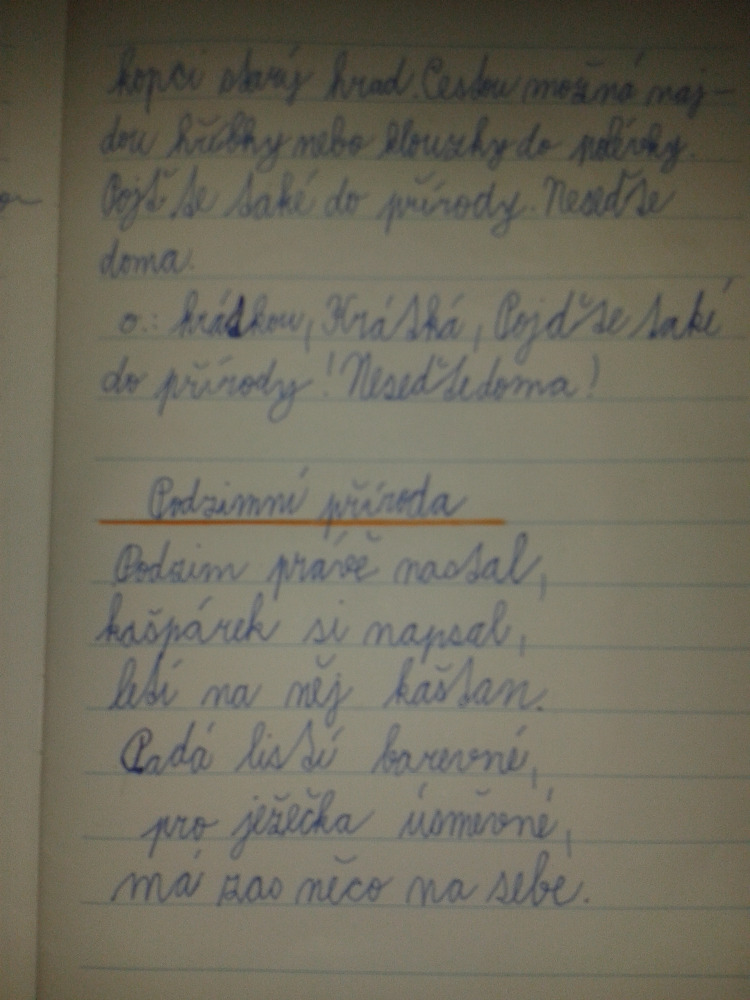 kopci starý hrad. Cestou možná naj-
dou hříbky nebo klouzky do polévky.
Pojďte také do přírody. Neseďte
doma.
o.: hrádkou, Krátká, Pojďte také
do přírody! Neseďte doma!
Podzimní příroda
Podzim právě nastal,
kašpárek si napsal,
letí na něj kaštan.
Padá listí barevné,
pro ježečka úsměvné,
má zas něco na sebe.